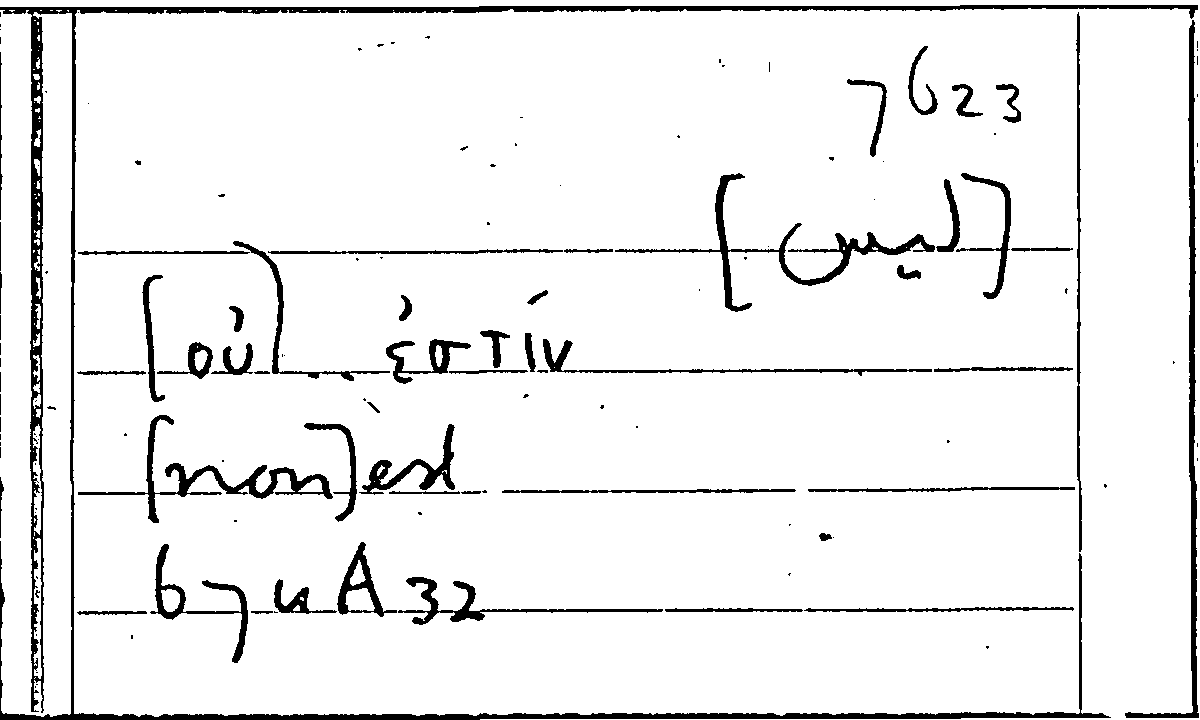 7623
[ليس]
[οὐ]..ἐστίν
[non]est
67uA32